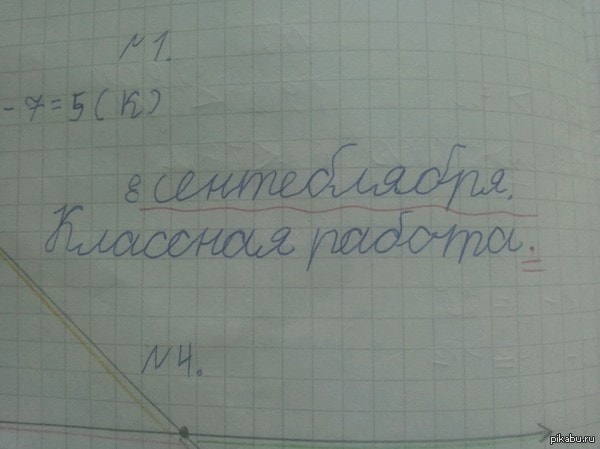 №1.
-7=5(К)
8 сентеблября.
Классная работа.
№4.
pikabu.ru